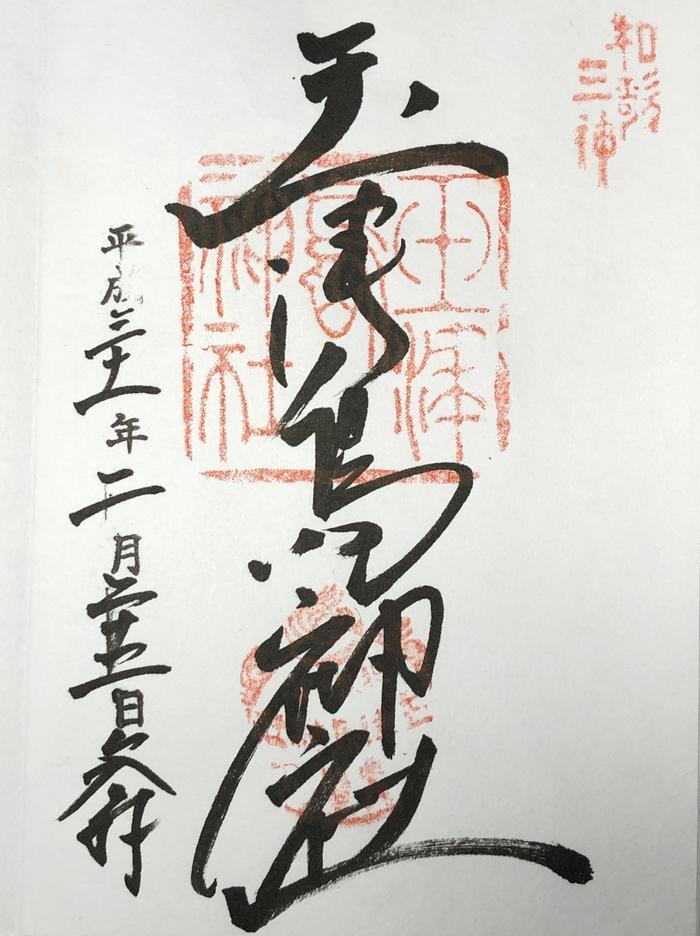 和歌
三神
玉津島神社
玉津島神社
平成三十一年二月二十五日参拝